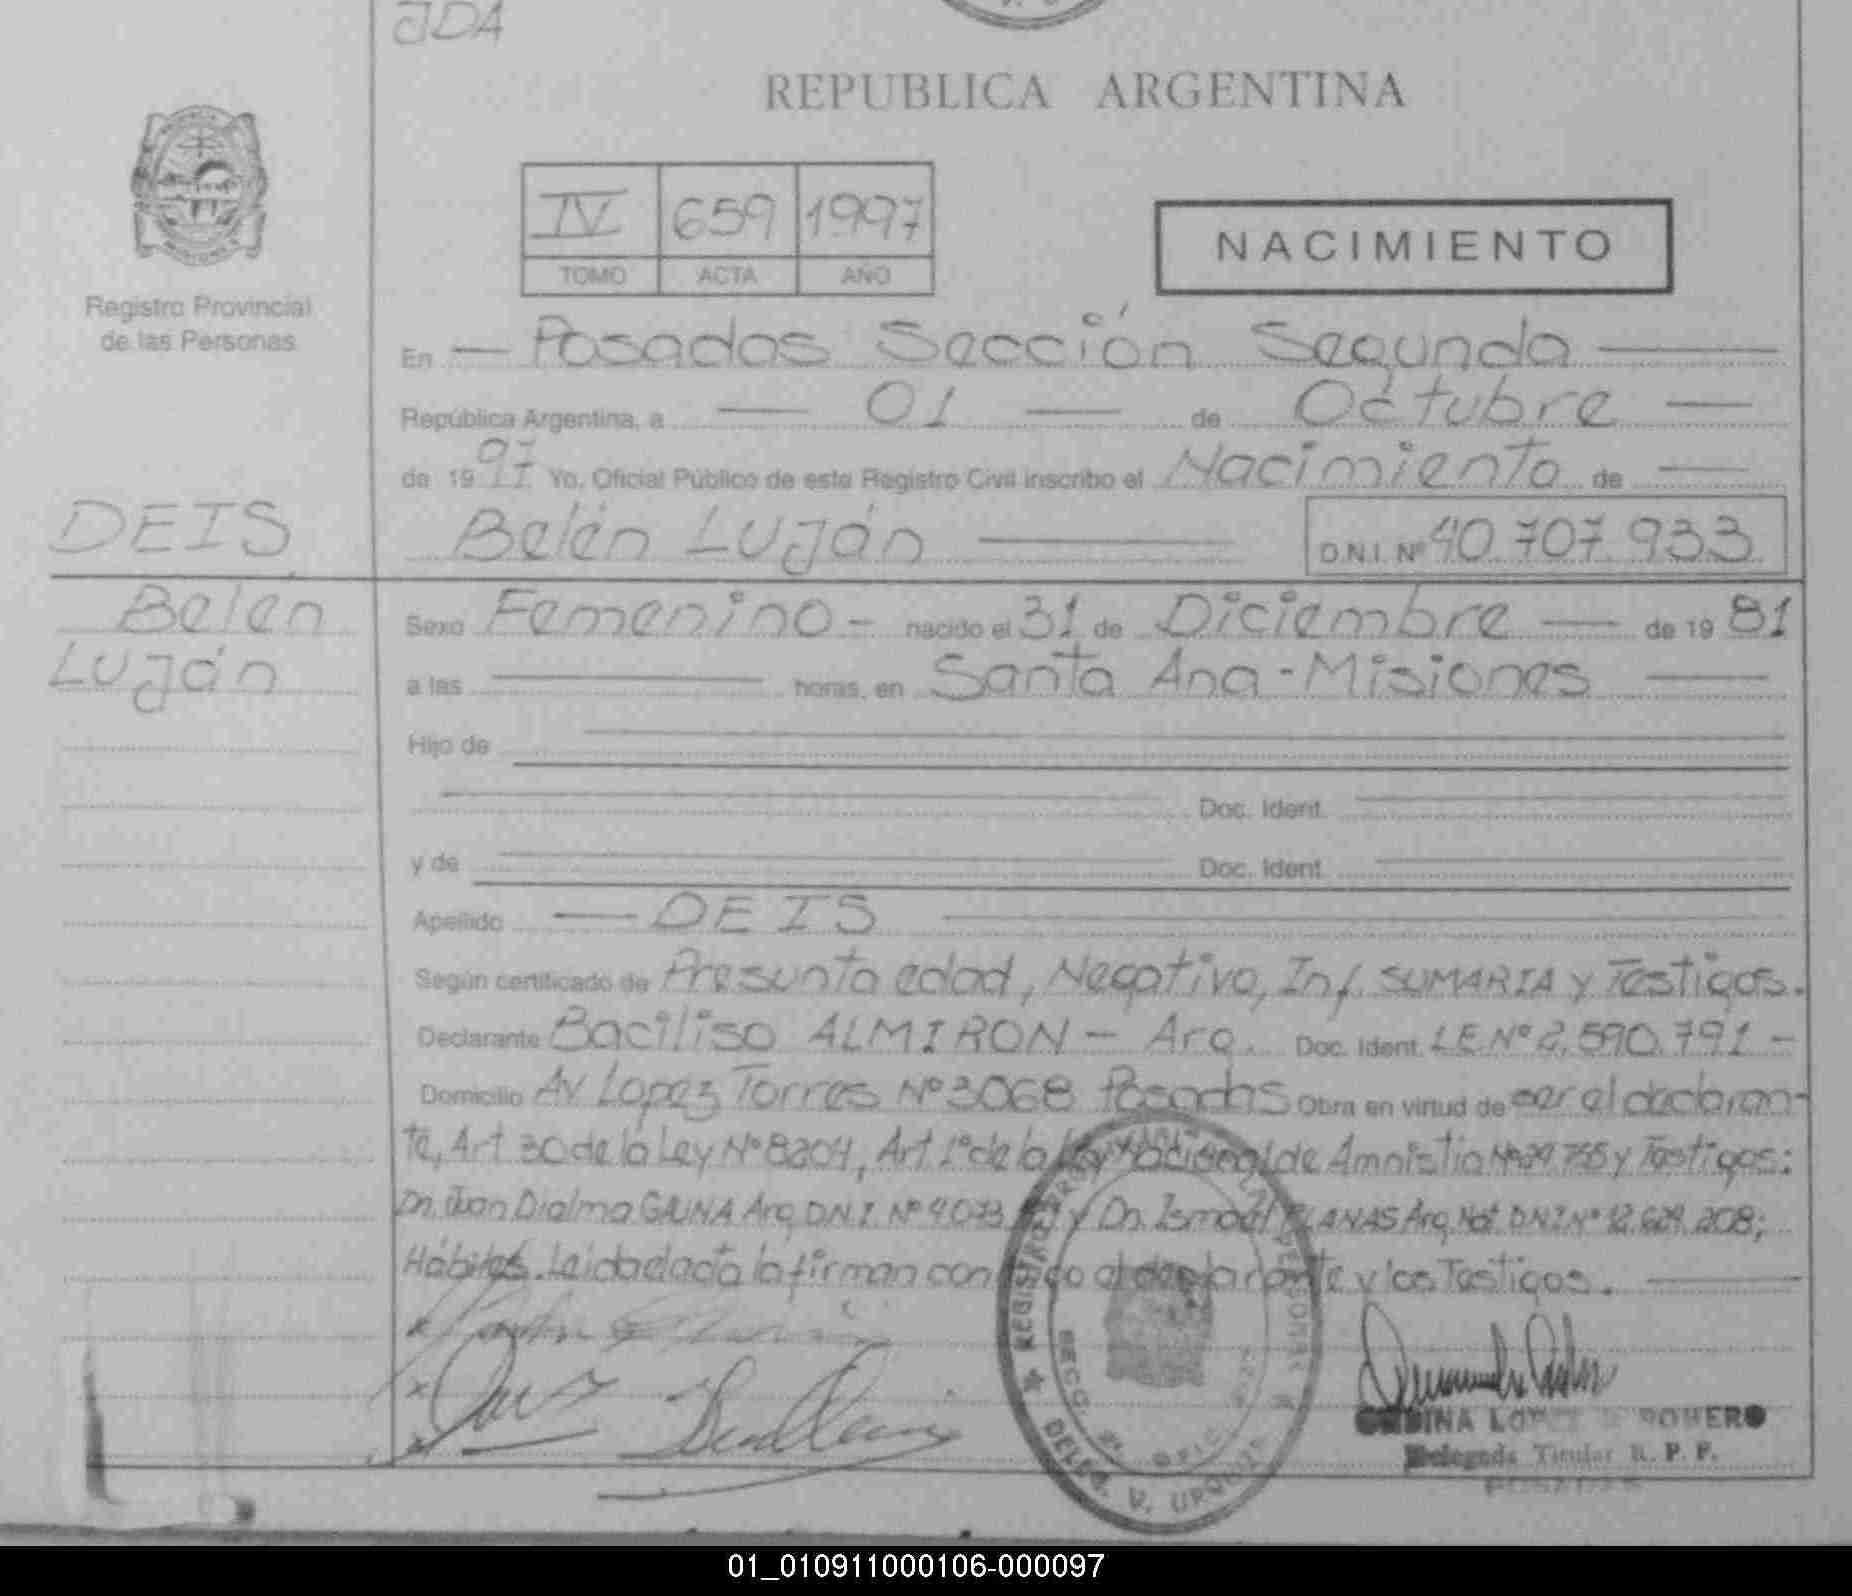 JDA
REPUBLICA ARGENTINA
IV 659 1997
TOMO ACTA AÑO
NACIMIENTO
Registro Provincial
de las Personas
En — Posadas Sección Segunda —
República Argentina, a — 01 — de Octubre —
de 1997 Yo, Oficial Público de este Registro Civil inscribo el Nacimiento de —
DEIS
Belén Luján — D.N.I. Nº 40.707.933
Belén
Luján
Sexo Femenino - nacido el 31 de Diciembre — de 19 81
a las — horas, en Santa Ana - Misiones —
Hijo de
Doc. Ident.
y de Doc. Ident.
Apellido — DEIS
Según certificado de Presunta edad, Negativo, Inf. SUMARIA y Testigos.
Declarante Baciliso ALMIRON - Arg. Doc. Ident. LE Nº 2.590.791 -
Domicilio Av Lopez Torres Nº 3068 Posadas Obra en virtud de ser el declaran-
te, Art 30 de la Ley Nº 8204, Art 1º de la Ley Nacional de Amnistia y Testigos:
Dn. Juan Dialma GAUNA Arg. D.N.I. Nº y Dn. Ismael PLANAS Arg. Nat. DNI Nº 12.624.208;
Hábiles. Leida el acta la firman conmigo el declarante y los Testigos. —
REGISTRO
SECC. 2ª OFIC.
DELEG. V. URQUIZA
LOPEZ ROMERO
Delegada Titular R. P. P.
POSADAS
01_010911000106-000097